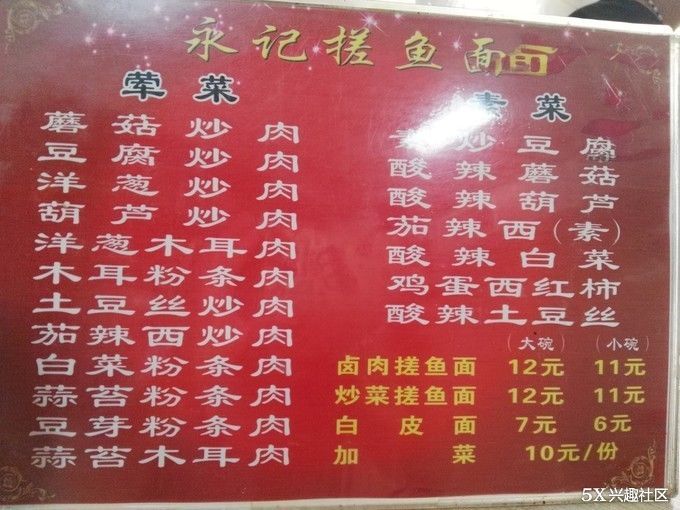 永记搓鱼面
荤菜
蘑菇炒肉
豆腐炒肉
洋葱炒肉
葫芦炒肉
洋葱木耳肉
木耳粉条肉
土豆丝炒肉
茄辣西炒肉
白菜粉条肉
蒜苔粉条肉
豆芽粉条肉
蒜苔木耳肉
素菜
素炒豆腐
酸辣蘑菇
酸辣葫芦
茄辣西(素)
酸辣白菜
鸡蛋西红柿
酸辣土豆丝
(大碗) (小碗)
卤肉搓鱼面 12元 11元
炒菜搓鱼面 12元 11元
白皮面 7元 6元
加菜 10元/份
5X兴趣社区